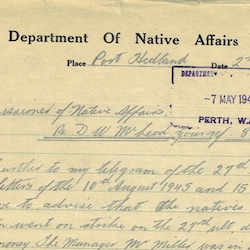 Department Of Native Affairs
Place Port Hedland Date 2
DEPARTMEN
-7 MAY 194
PERTH, W.A
issioner of Native Affairs.
Re D. W. McLeod, yourself 8
further to my telegram of the 27th
letters of the 10th August 1945 and 15
ve to advise that the natives
went on strike on the 27th ult,
money. The Manager Mr Miller was on